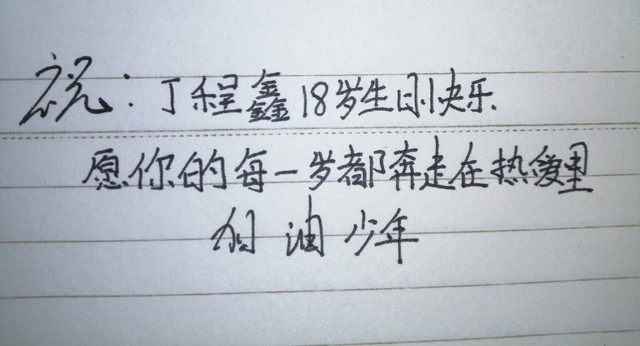 祝：丁程鑫18岁生日快乐
愿你的每一岁都奔走在热爱里
加油少年